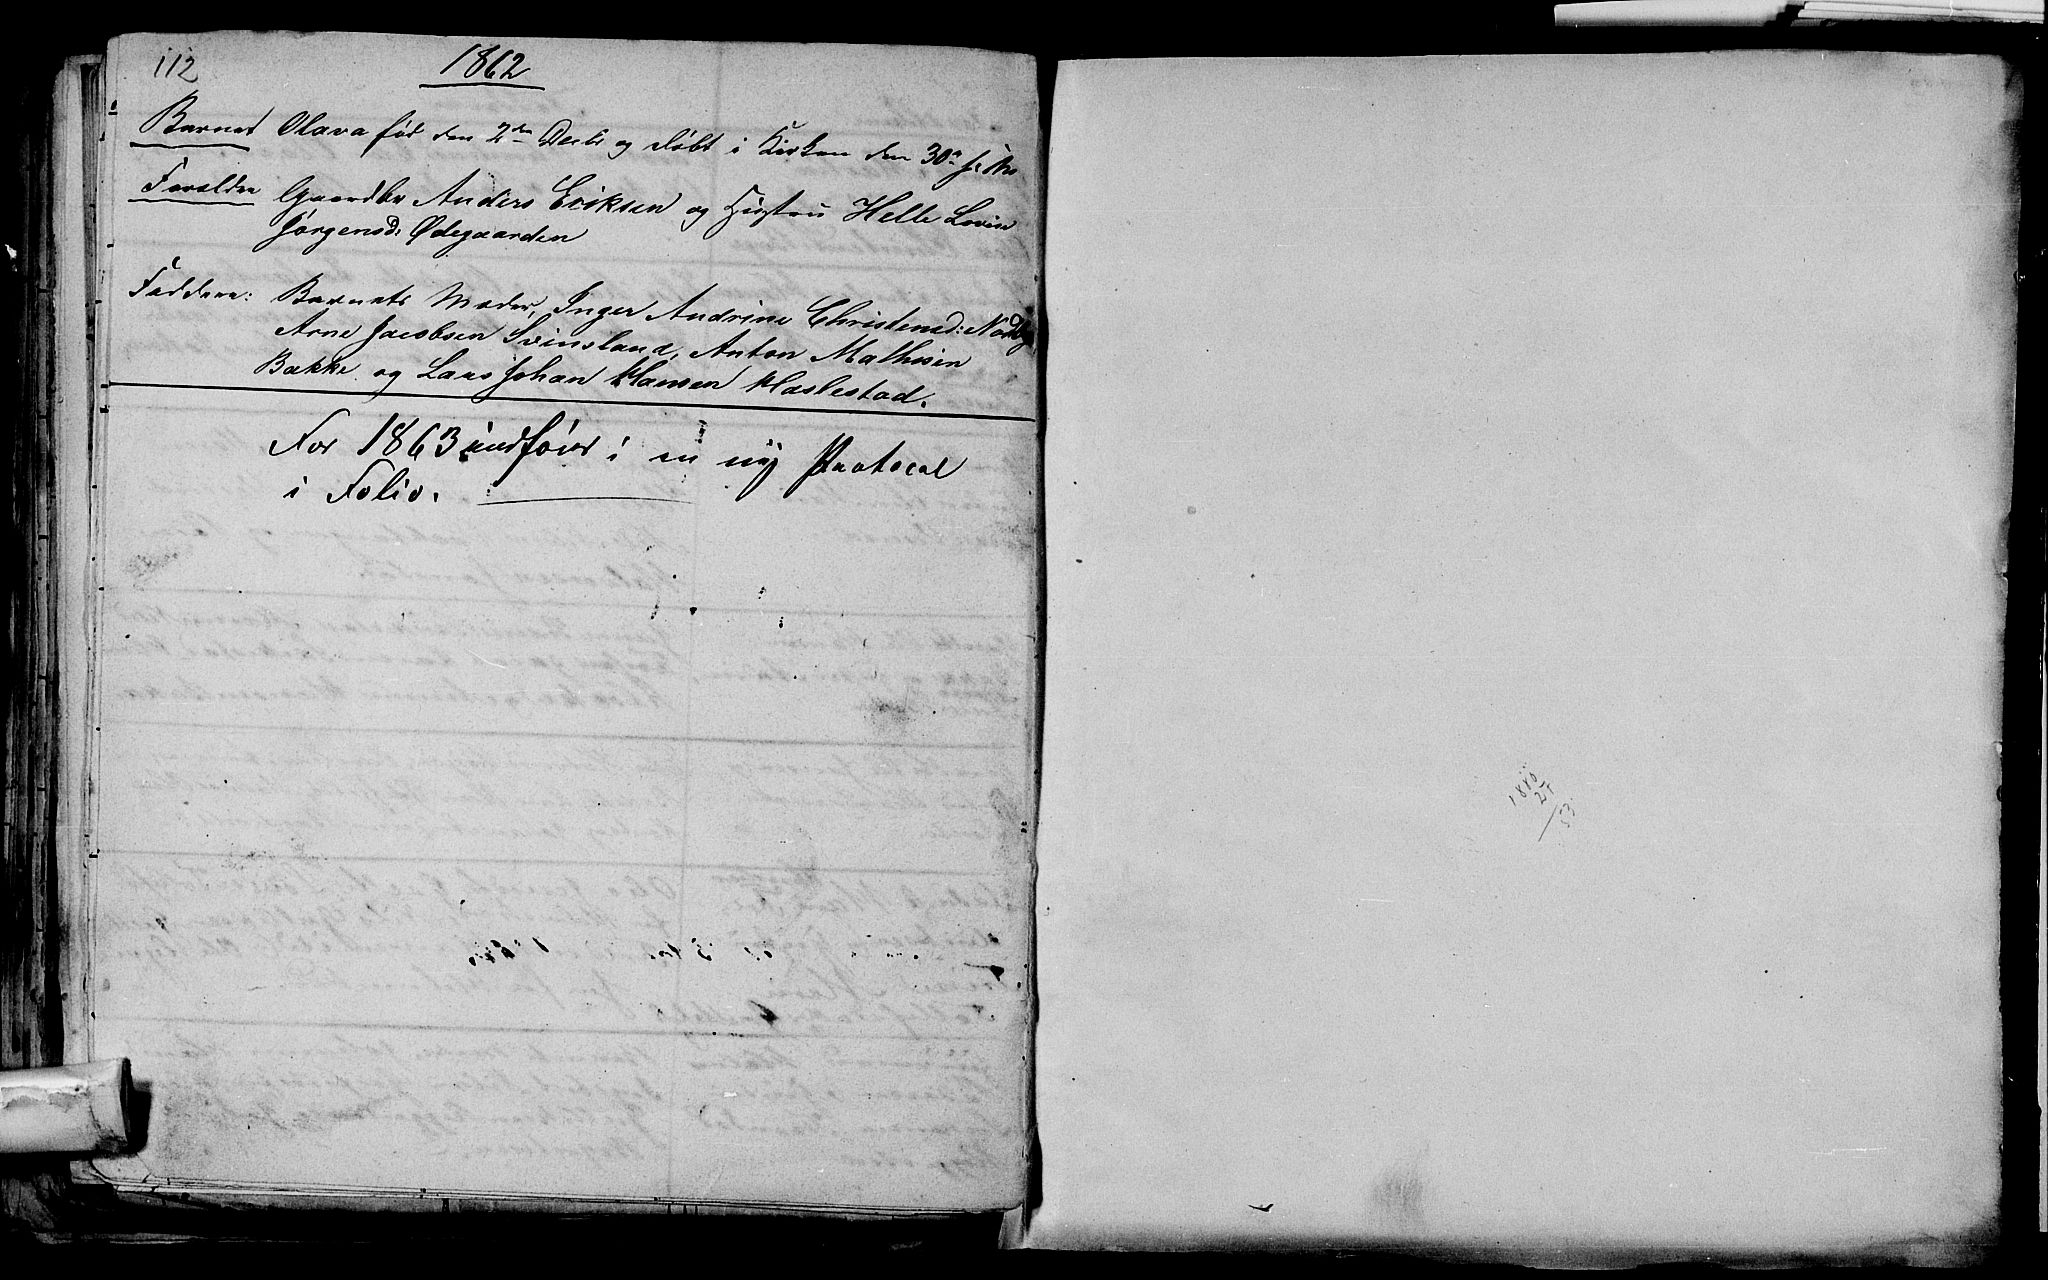 112
1862
Barnet Olava fød den 2den Decbr og døbt i Kirken den 30te
Forældre Gaardbr Anders Eriksen og Hustru Helle Lovise
Jørgensd: Ødegaarden
Faddere: Barnets Moder, Inger Andrine Christensd: Nordby
Arne Jacobsen Svinsland, Anton Mathisen
Bakke og Lars Johan Hansen Haslestad.
For 1863 indføres i en ny Protocol
i Folio.